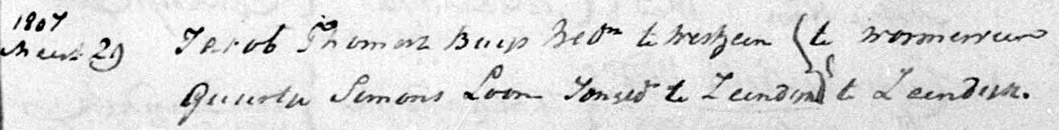 1807
Maart 29 Jacob Thomasz Buijs Wedn te Westzaan { te Wormerveer
Guurtje Simons Loon Jonged te Zaandijk } te Zaandijk.